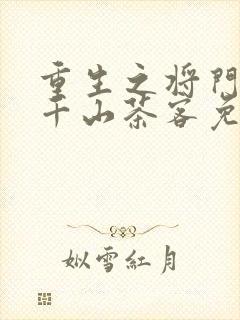 重生之将門
千山茶客免
姒雪紅月